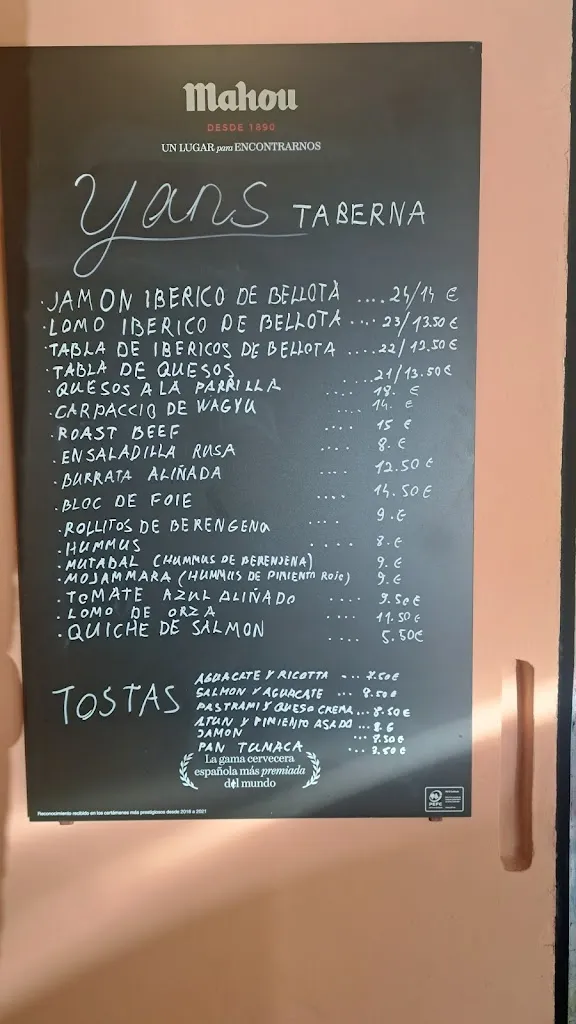 Mahou
DESDE 1890
UN LUGAR para ENCONTRARNOS
Yans TABERNA
·JAMON IBERICO DE BELLOTA .... 24/14 €
·LOMO IBERICO DE BELLOTA ... 23/13.50 €
·TABLA DE IBERICOS DE BELLOTA .... 22/13.50 €
·TABLA DE QUESOS .... 21/13.50€
·QUESOS A LA PARRILLA .... 18. €
·CARPACCIO DE WAGYU .... 14. €
·ROAST BEEF .... 15 €
·ENSALADILLA RUSA .... 8. €
·BURRATA ALIÑADA .... 12.50 €
·BLOC DE FOIE .... 14.50€
·ROLLITOS DE BERENGENA .... 9. €
·HUMMUS .... 8. €
·MUTABAL (HUMMUS DE BERENJENA) 9. €
·MOJAMMARA (HUMMUS DE PIMIENTO ROJO) 9. €
·TOMATE AZUL ALIÑADO .... 9.50€
·LOMO DE ORZA .... 11.50€
·QUICHE DE SALMON .... 5.50€
TOSTAS
AGUACATE Y RICOTTA ... 7.50€
SALMON Y AGUACATE ... 8.50€
PASTRAMI Y QUESO CREMA ... 8.50€
ATUN Y PIMIENTO ASADO ... 8.€
JAMON ... 9.50€
PAN TUMACA ... 3.50€
La gama cervecera
española más premiada
del mundo
Reconocimiento recibido en los certámenes más prestigiosos desde 2016 a 2021
PEFC